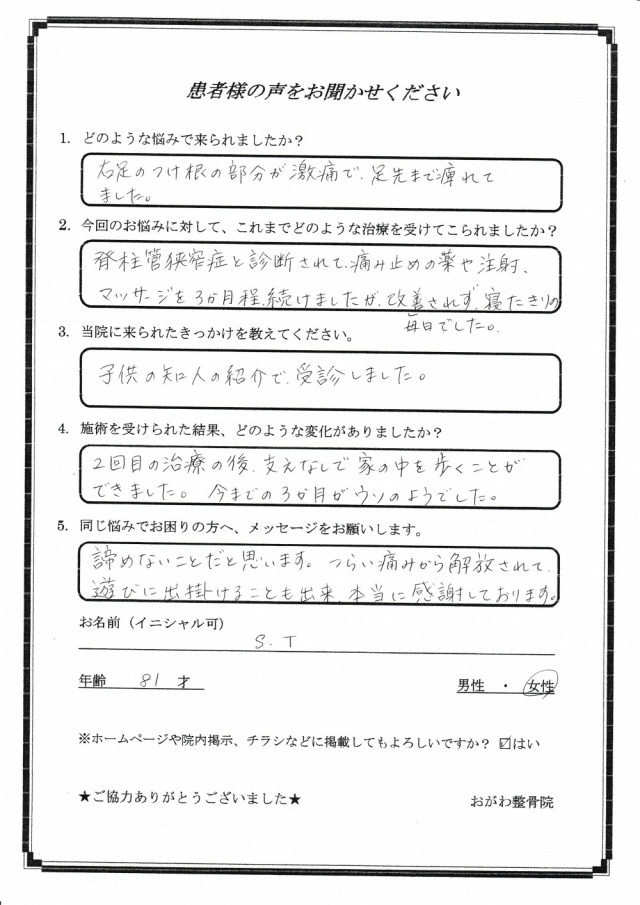 患者様の声をお聞かせください
1. どのような悩みで来られましたか？
右足のつけ根の部分が激痛で、足先まで痺れて
ました。
2. 今回のお悩みに対して、これまでどのような治療を受けてこられましたか？
脊柱管狭窄症と診断されて、痛み止めの薬や注射、
マッサージを3か月程、続けましたが、改善されず、寝たきりの
毎日でした。
3. 当院に来られたきっかけを教えてください。
子供の知人の紹介で、受診しました。
4. 施術を受けられた結果、どのような変化がありましたか？
2回目の治療の後、支えなしで家の中を歩くことが
できました。今までの3か月がウソのようでした。
5. 同じ悩みでお困りの方へ、メッセージをお願いします。
諦めないことだと思います。つらい痛みから解放されて、
遊びに出掛けることも出来、本当に感謝しております。
お名前（イニシャル可）
S.T
年齢 81 才 男性 ・ 女性
※ホームページや院内掲示、チラシなどに掲載してもよろしいですか？ ☑はい
★ご協力ありがとうございました★ おがわ整骨院